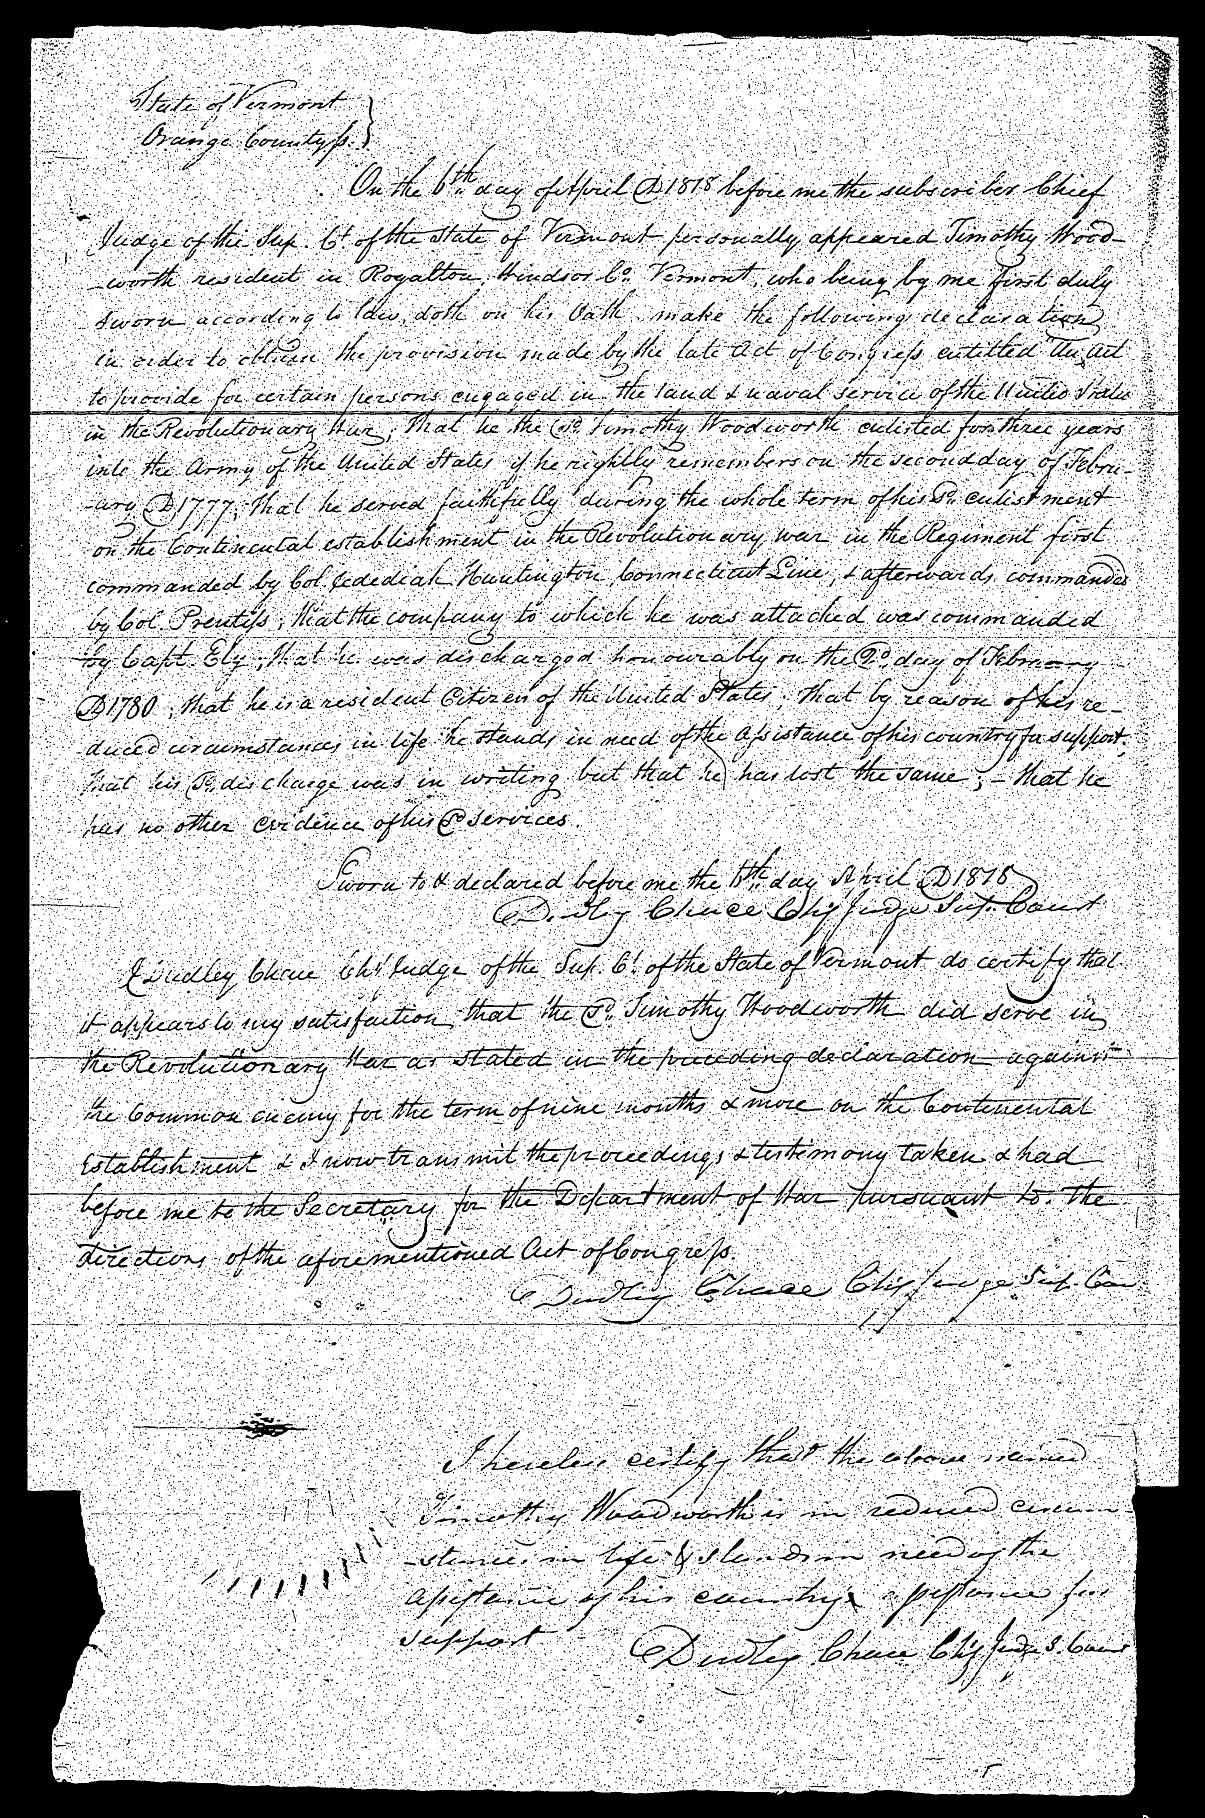 State of Vermont }
Orange County ss. }
On the 6th day of April AD 1818 before me the subscriber Chief
Judge of the Sup. Ct. of the State of Vermont personally appeared Timothy Wood-
-worth resident in Royalton, Windsor Co. Vermont, who being by me first duly
sworn according to law, doth on his Oath make the following declaration
in order to obtain the provision made by the late Act of Congress entitled "An Act
to provide for certain persons engaged in the land & naval service of the United States
in the Revolutionary War; that he the sd. Timothy Woodworth enlisted for three years
into the Army of the United States if he rightly remembers on the second day of Febru-
-ary AD 1777; that he served faithfully during the whole term of his sd. enlistment
on the Continental establishment in the Revolutionary war in the Regiment first
commanded by Col. Jedediah Huntington, Connecticut Line, & afterwards commanded
by Col. Prentiss; that the company to which he was attached was commanded
by Capt. Ely; that he was discharged honourably on the 2d. day of February
AD 1780; that he is a resident Citizen of the United States; that by reason of his re-
duced circumstances in life he stands in need of the assistance of his country for support;
that his sd. discharge was in writing but that he has lost the same; - that he
has no other evidence of his sd services.
Sworn to & declared before me the 6th day April AD 1818
Dudley Chace Chf Judge Sup. Court
I Dudley Chace Chf. Judge of the Sup. Ct. of the State of Vermont do certify that
it appears to my satisfaction that the sd. Timothy Woodworth did serve in
the Revolutionary War as stated in the preceding declaration against
the Common enemy for the term of nine months & more on the Continental
Establishment & I now transmit the proceedings & testimony taken & had
before me to the Secretary for the Department of War pursuant to the
directions of the aforementioned Act of Congress.
Dudley Chace Chf Judge Sup. Cou
I hereby certify that the above named
Timothy Woodworth is in reduced circum-
-stances in life & stands in need of the
assistance of his country assistance for
support
Dudley Chace Chf Judge S. Court